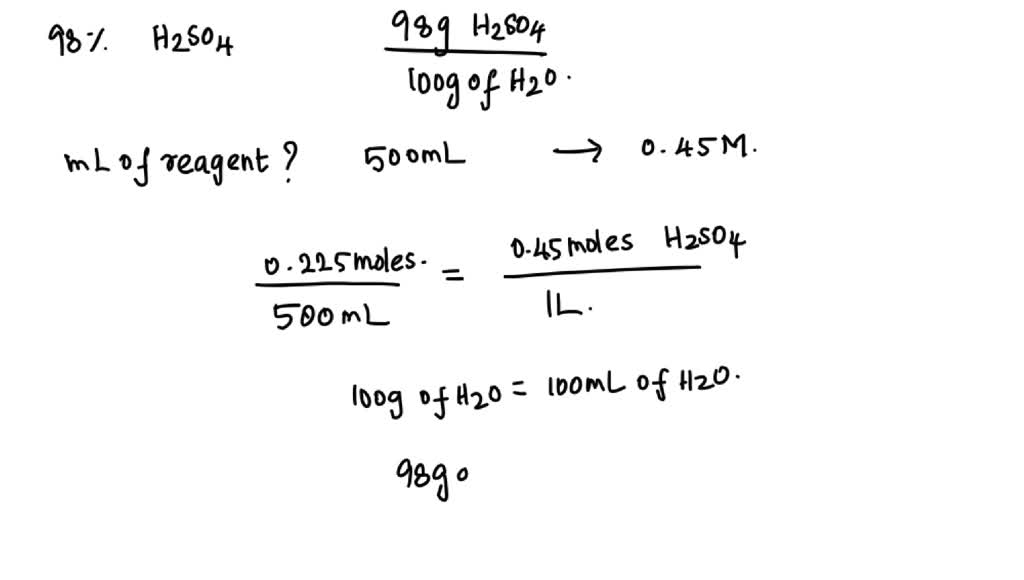 98% H2SO4 98g H2SO4
100g of H2O.
mL of reagent? 500mL → 0.45M.
0.225moles. = 0.45moles H2SO4
500mL 1L.
100g of H2O = 100mL of H2O.
98g o